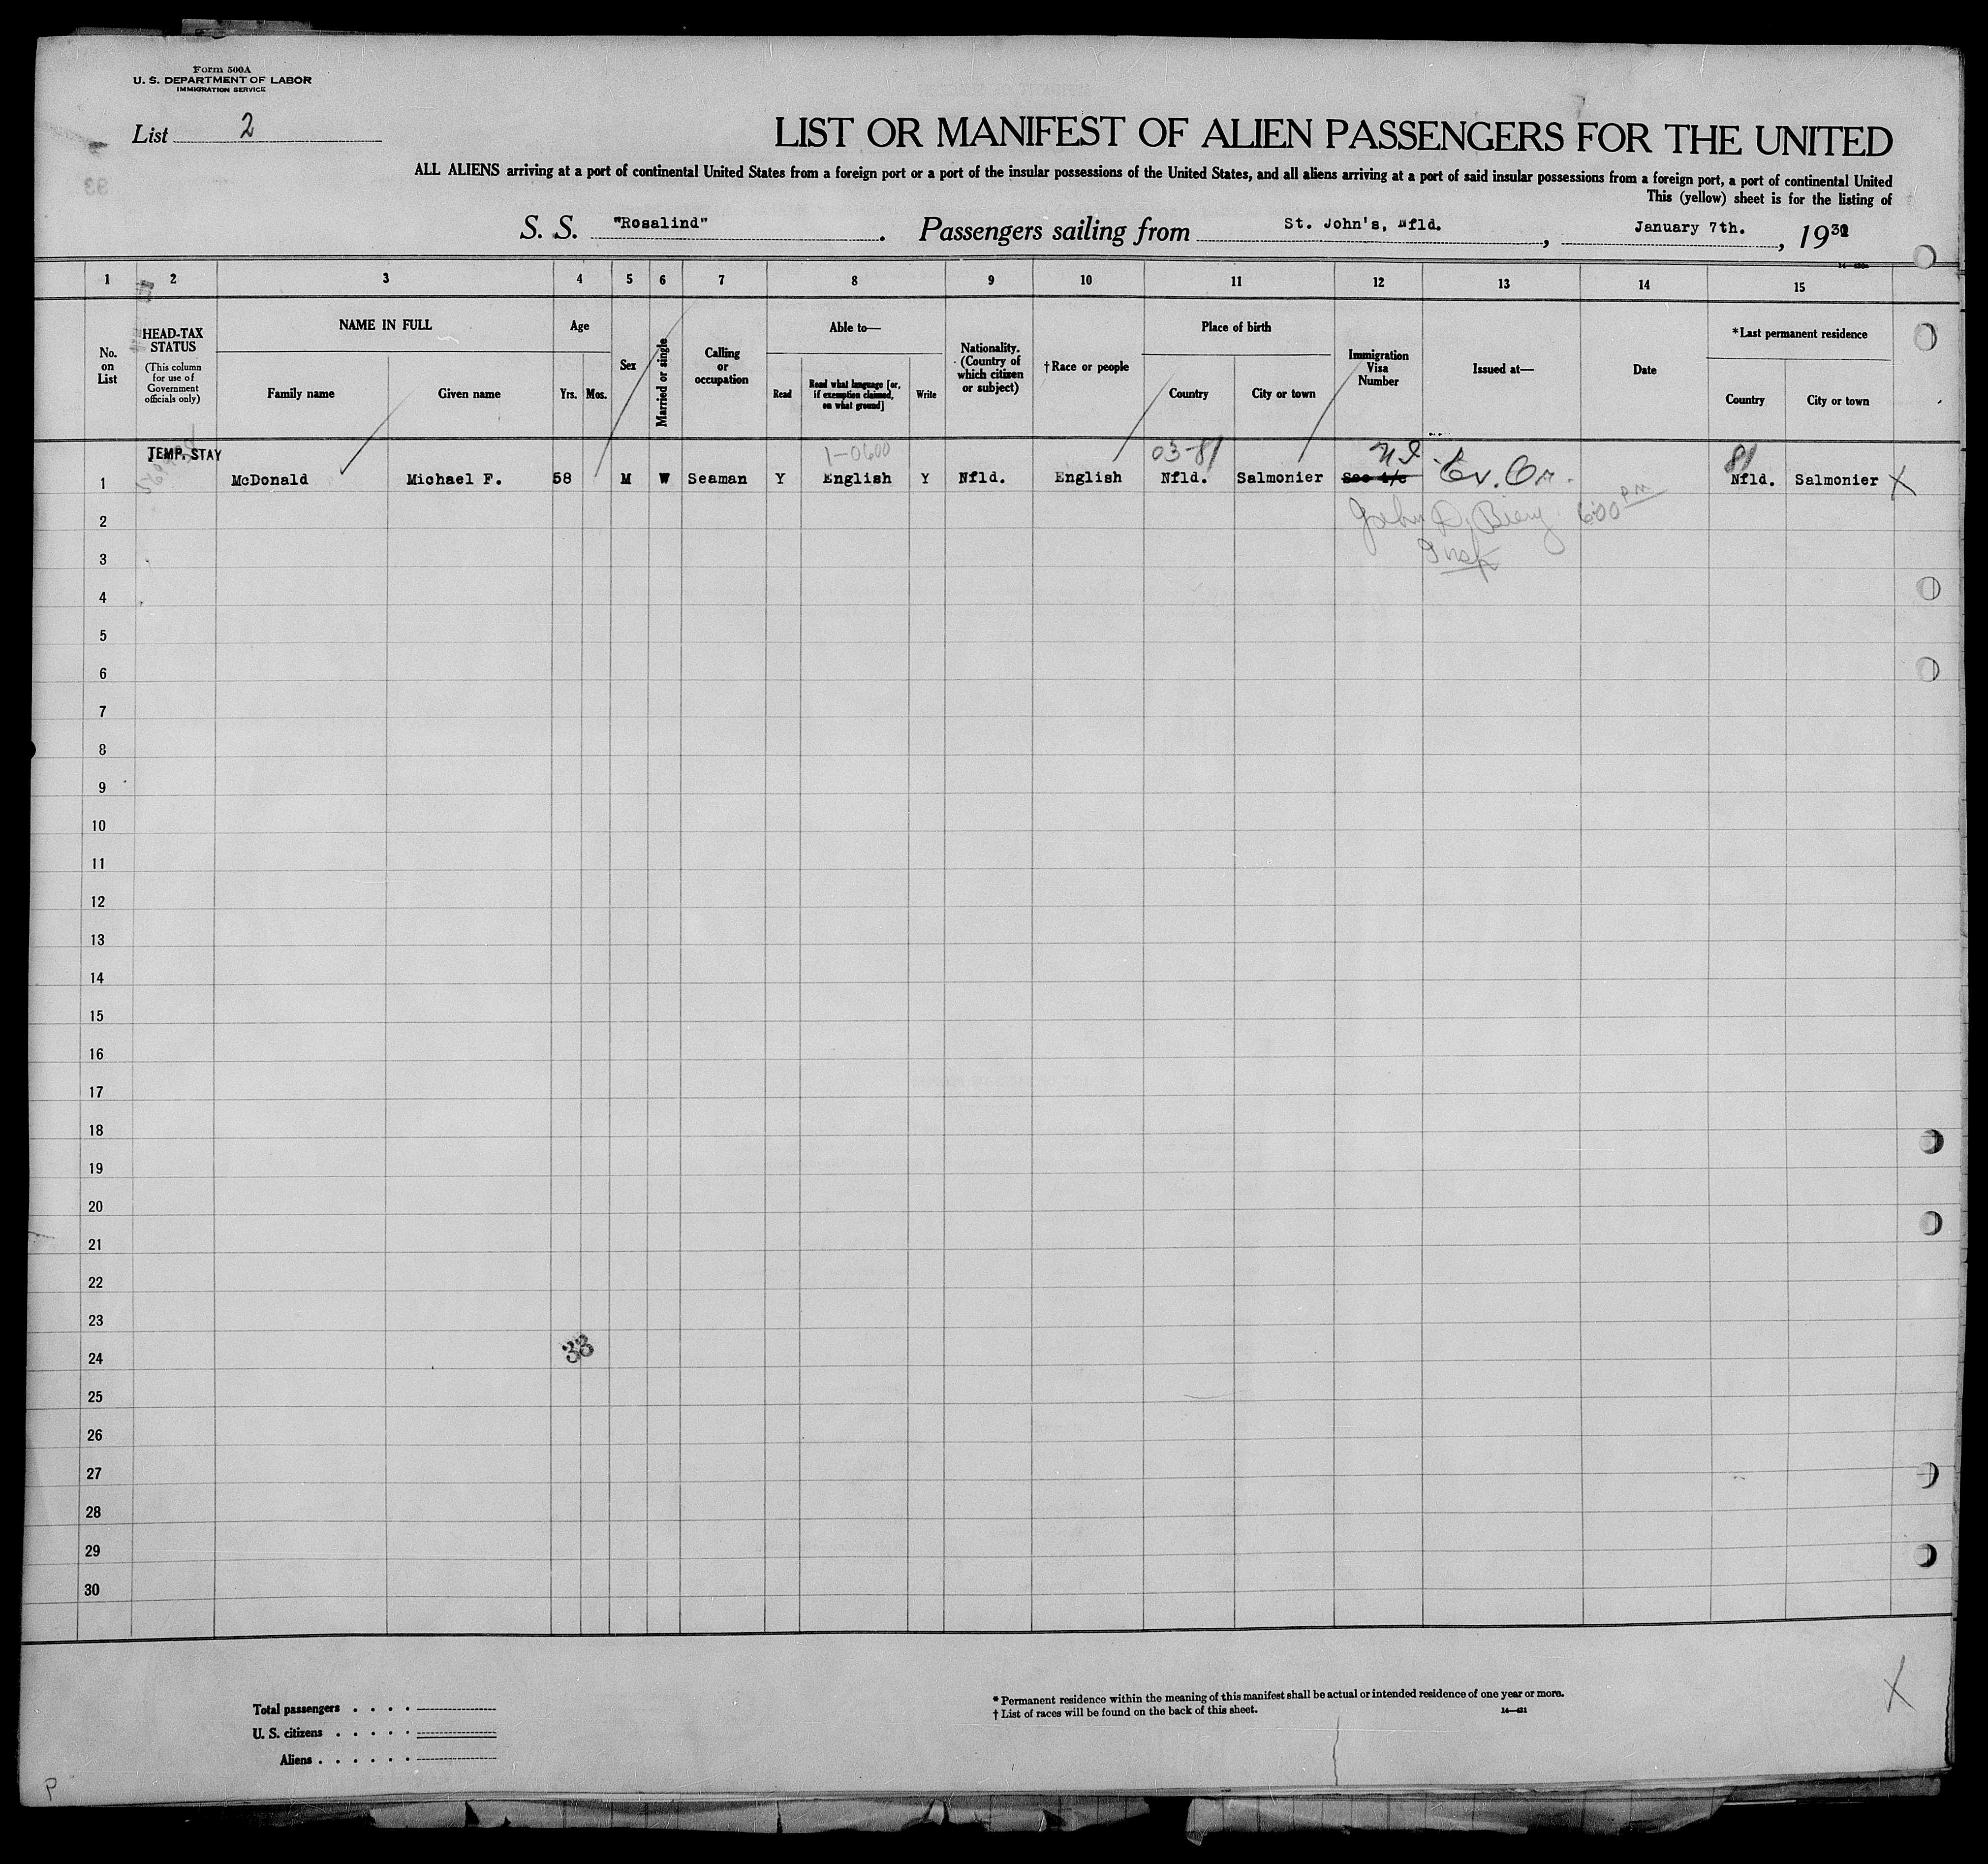 Form 500A
U. S. DEPARTMENT OF LABOR
IMMIGRATION SERVICE
List 2
LIST OR MANIFEST OF ALIEN PASSENGERS FOR THE UNITED
ALL ALIENS arriving at a port of continental United States from a foreign port or a port of the insular possessions of the United States, and all aliens arriving at a port of said insular possessions from a foreign port, a port of continental United
This (yellow) sheet is for the listing of
S. S. "Rosalind". Passengers sailing from St. John's, Nfld., January 7th., 19
1 2 3 4 5 6 7 8 9 10 11 12 13 14 15
No. on List
HEAD-TAX STATUS
(This column for use of Government officials only)
NAME IN FULL
Family name
Given name
Age
Yrs. Mos.
Sex
Married or single
Calling or occupation
Able to—
Read
Read what language [or, if exemption claimed, on what ground]
Write
Nationality. (Country of which citizen or subject)
†Race or people
Place of birth
Country
City or town
Immigration Visa Number
Issued at—
Date
*Last permanent residence
Country
City or town
TEMP. STAY 1-0600 03-81 81
1 McDonald Michael F. 58 M W Seaman Y English Y Nfld. English Nfld. Salmonier Nfld. Salmonier X
2 6:00 PM
3 Insp
4
5
6
7
8
9
10
11
12
13
14
15
16
17
18
19
20
21
22
23
24 33
25
26
27
28
29
30
Total passengers . . . .
U. S. citizens . . . . .
Aliens . . . . . .
* Permanent residence within the meaning of this manifest shall be actual or intended residence of one year or more.
† List of races will be found on the back of this sheet.
14—421
X
P